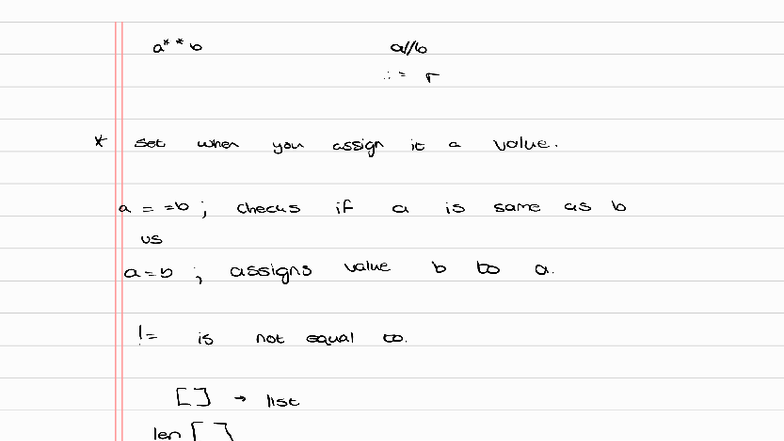 a**b a//b
:= r
* set when you assign it a value.
a ==b ; checks if a is same as b
vs
a=b ; assigns value b to a.
!= is not equal to.
[] → list
len []